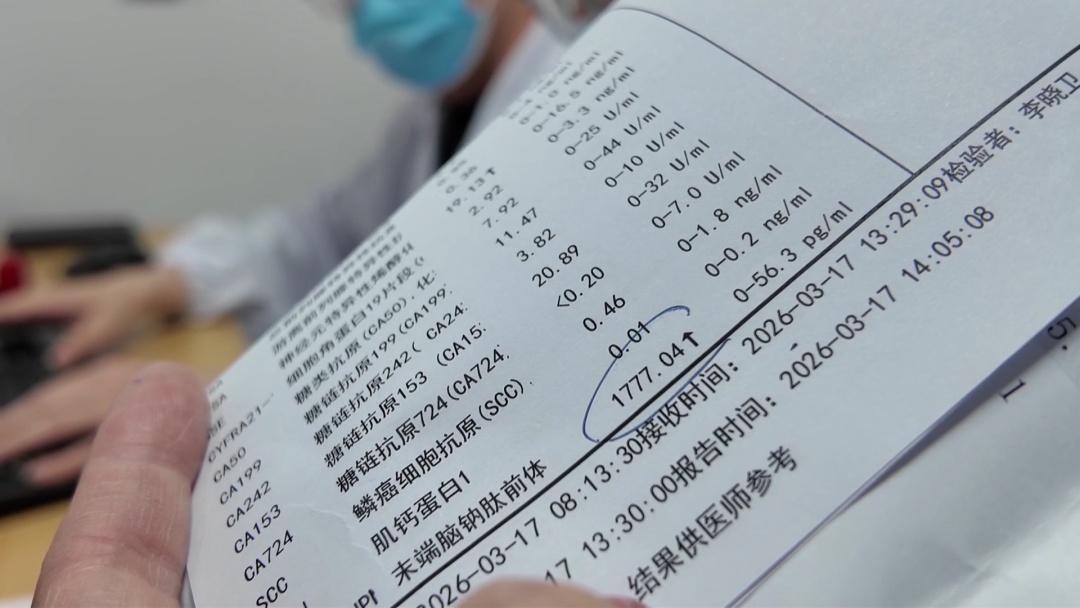 游离前列腺特异性抗 0-1.0 ng/ml
SE 神经元特异性烯醇化 19.13↑ 0-16.5 ng/ml
CYFRA21- 细胞角蛋白19片段( 2.92 0-3.3 ng/ml
CA50 糖类抗原(CA50).化 7.92 0-25 U/ml
CA199 糖链抗原199(CA199: 11.47 0-44 U/ml
CA242 糖链抗原242( CA24: 3.82 0-10 U/ml
CA153 糖链抗原153 (CA15: 20.89 0-32 U/ml
CA724 糖链抗原724(CA724. <0.20 0-7.0 U/ml
SCC 鳞癌细胞抗原(SCC) 0.46 0-1.8 ng/ml
肌钙蛋白1 0.01 0-0.2 ng/ml
未端脑钠肽前体 1777.04↑ 0-56.3 pg/ml
2026-03-17 08:13:30接收时间: 2026-03-17 13:29:09检验者: 李晓卫
17 13:30:00报告时间: 2026-03-17 14:05:08
结果供医师参考